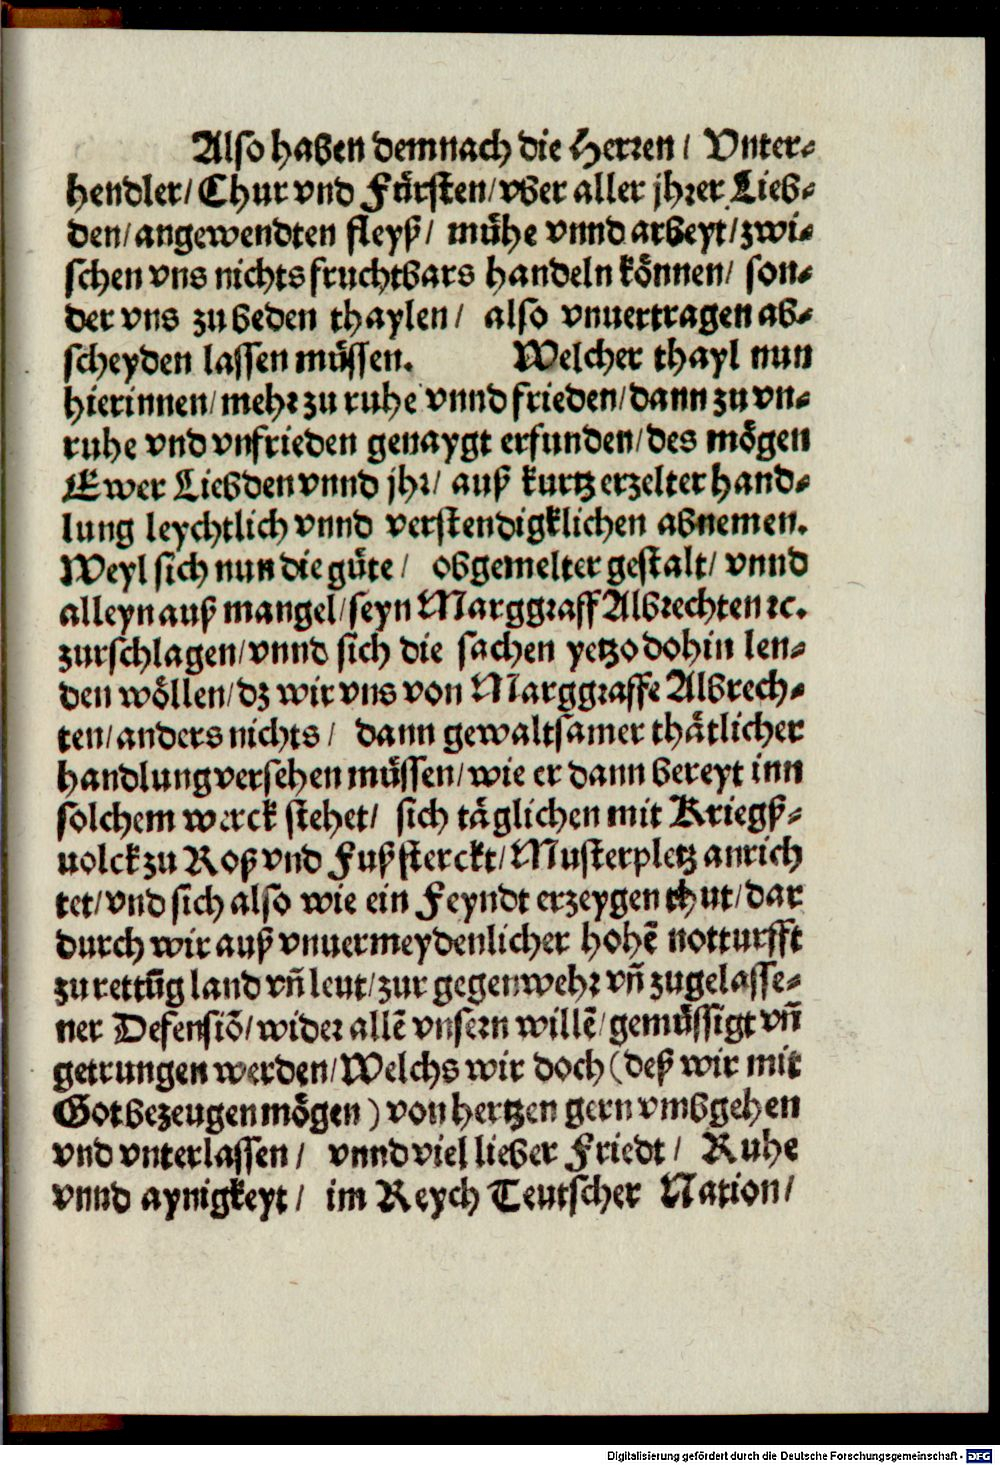 Also haben demnach die Herren/ Vnter⸗
hendler/ Chur vnd Fürsten/ vber aller jhrer Lieb⸗
den/ angewendten fleyß/ mühe vnnd arbeyt/ zwi⸗
schen vns nichts fruchtbars handeln können/ son⸗
der vns zu beden thaylen/ also vnuertragen ab⸗
scheyden lassen müssen. Welcher thayl nun
hierinnen/ mehr zu ruhe vnnd frieden/ dann zu vn⸗
ruhe vnd vnfrieden genaygt erfunden/ des mögen
Ewer Liebden vnnd jhr/ auß kurtz erzelter hand⸗
lung leychtlich vnnd verstendigklichen abnemen.
Weyl sich nun die güte/ obgemelter gestalt/ vnnd
alleyn auß mangel/ seyn Marggraff Albrechten ꝛc.
zurschlagen/ vnnd sich die sachen yetzo dohin len⸗
den wöllen/ dz wir vns von Marggraffe Albrech⸗
ten/ anders nichts/ dann gewaltsamer thätlicher
handlung versehen müssen/ wie er dann bereyt inn
solchem werck stehet/ sich täglichen mit Kriegß⸗
uolck zu Roß vnd Fuß sterckt/ Musterpletz anrich
tet/ vnd sich also wie ein Feyndt erzeygen thut/ dar
durch wir auß vnuermeydenlicher hohẽ notturfft
zu rettũg land vñ leut/ zur gegenwehr vñ zugelasse⸗
ner Defensiõ/ wider allẽ vnsern willẽ/ gemüssigt vñ
getrungen werden/ Welchs wir doch (deß wir mit
Got bezeugen mögen) von hertzen gern vmbgehen
vnd vnterlassen/ vnnd viel lieber Friedt/ Ruhe
vnnd aynigkeyt/ im Reych Teutscher Nation/
Digitalisierung gefördert durch die Deutsche Forschungsgemeinschaft - DFG